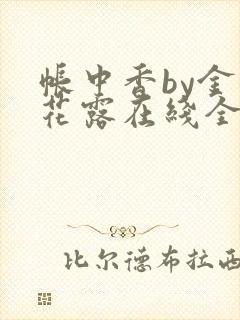 帐中香by金
花露在线全
比尔德布拉西